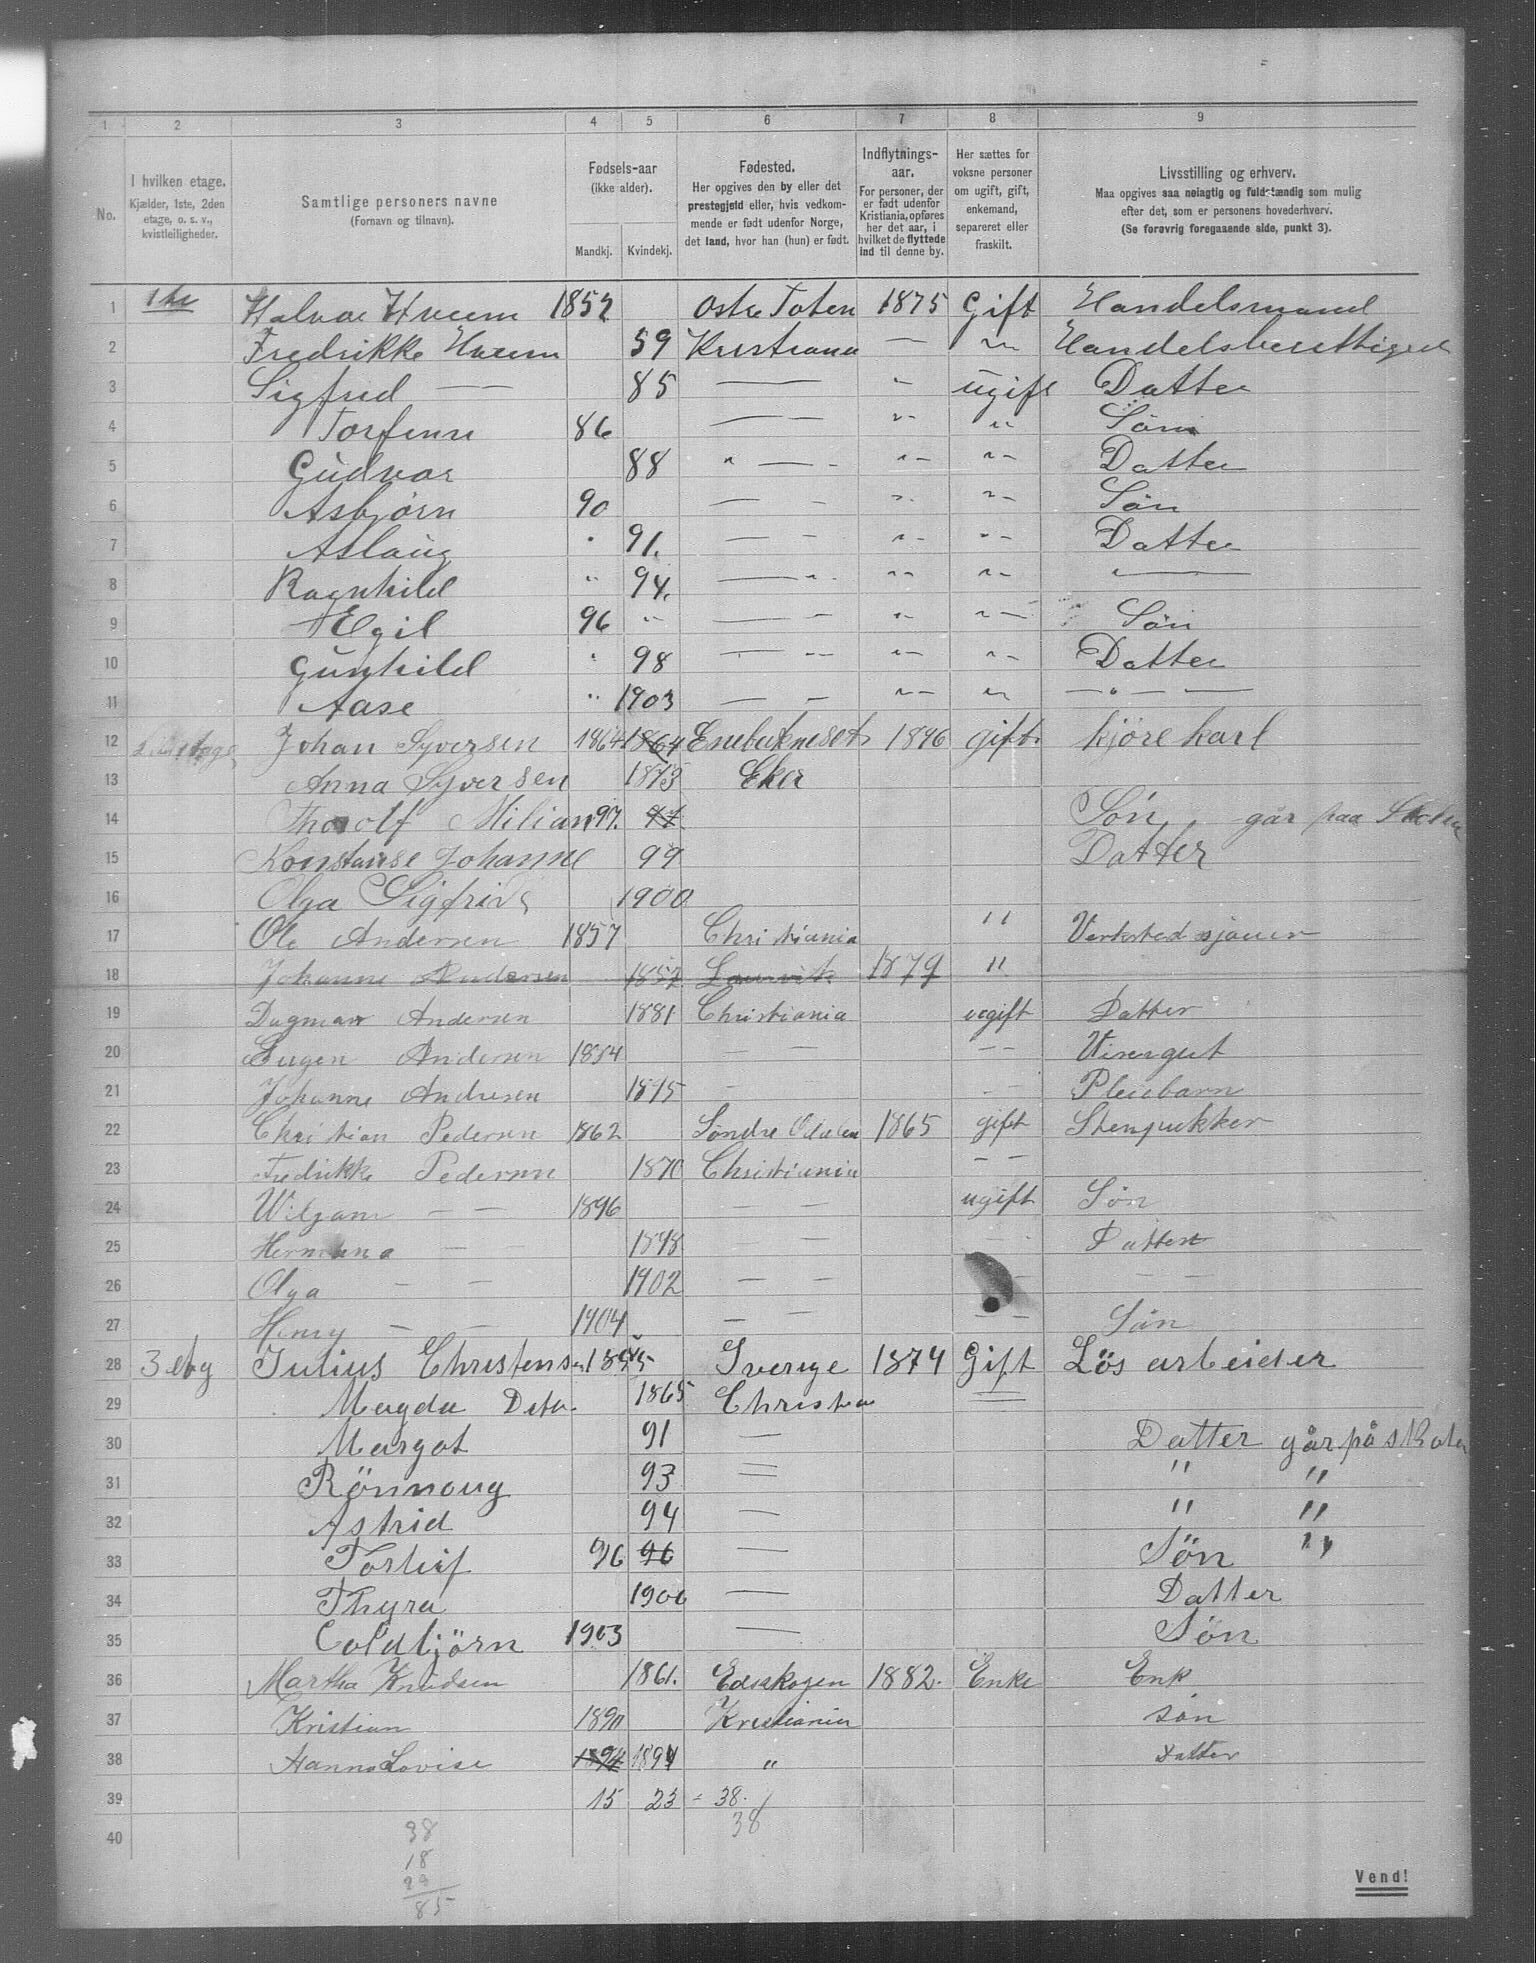 1 2 3 4 5 6 7 8 9
No.
I hvilken etage. Kjælder, 1ste, 2den etage, o. s. v., kvistleiligheder.
Samtlige personers navne (Fornavn og tilnavn).
Fødsels-aar (ikke alder). Mandkj. Kvindekj.
Fødested. Her opgives den by eller det prestegjeld eller, hvis vedkommende er født udenfor Norge, det land, hvor han (hun) er født.
Indflytnings-aar. For personer, der er født udenfor Kristiania, opføres her det aar, i hvilket de flyttede ind til denne by.
Her sættes for voksne personer om ugift, gift, enkemand, separeret eller fraskilt.
Livsstilling og erhverv. Maa opgives saa nøiagtig og fuldstændig som mulig efter det, som er personens hovederhverv. (Se forøvrig foregaaende side, punkt 3).
1 1ste Halvor Hveem 1852 Ostre Toten 1875 Gift Handelsmand
2 Fredrikke Hveem 59 Kristiania — " Handelsberettiget
3 Sigfred — 85 — " ugift Datter
4 Torfinn 86 — " " Søn
5 Gudvor 88 " — " " Datter
6 Asbjørn 90 — " " Søn
7 Aslaug " 91. — " " Datter
8 Ragnhild " 94. — " " " —
9 Egil 96 " — " " Søn
10 Gunhild " 98 — " " Datter
11 Aase " 1903 — " " — " —
12 Johan Syversen 1864 1864 Enebakneset 1896 gift kjöre karl
13 Anna Syversen 1873 Eker
14 Thorolf Milian 97. 97 Søn går paa Skolen
15 Konstanse Johanne 99 Datter
16 Olga Sigfrid 1900
17 Ole Andersen 1857 Christiania " Verksted sjouer
18 Johanne Andersen 1857 Laurvik 1879 "
19 Dagmar Andersen 1881 Christiania ugift Datter
20 Eugen Andersen 1884 — — — Visergut
21 Johanne Andresen 1895 — — Pleiebarn
22 Christian Pedersen 1862 Söndre Odalen 1865 gift Stenpukker
23 Fredrikke Pedersen 1870 Christiania — —
24 Wiljam — — 1896 — — ugift Søn
25 Hermana — 1898 — — — Datter
26 Olga — — 1902 — — — — —
27 Henry — — 1904 — — — — Søn
28 3 etg Julius Christensen 1855 Sverige 1874 Gift Lös arbeider
29 Magda Deto. 1865 Christia =
30 Margot 91 — Datter går på skolen
31 Rönnoug 93 = " "
32 Astrid 94 — " "
33 Torleif 96 96 — Sön "
34 Thyra 1900 — Datter
35 Coldbjörn 1903 — Sön
36 Martha Knudsen 1861. Edsskogen 1882. Enke Enk
37 Kristian 1890 Kristiania søn
38 Hanna Lovise 1894 1894 " Datter
39 15 23 = 38.
40 38
38
18
29
85
Vend!